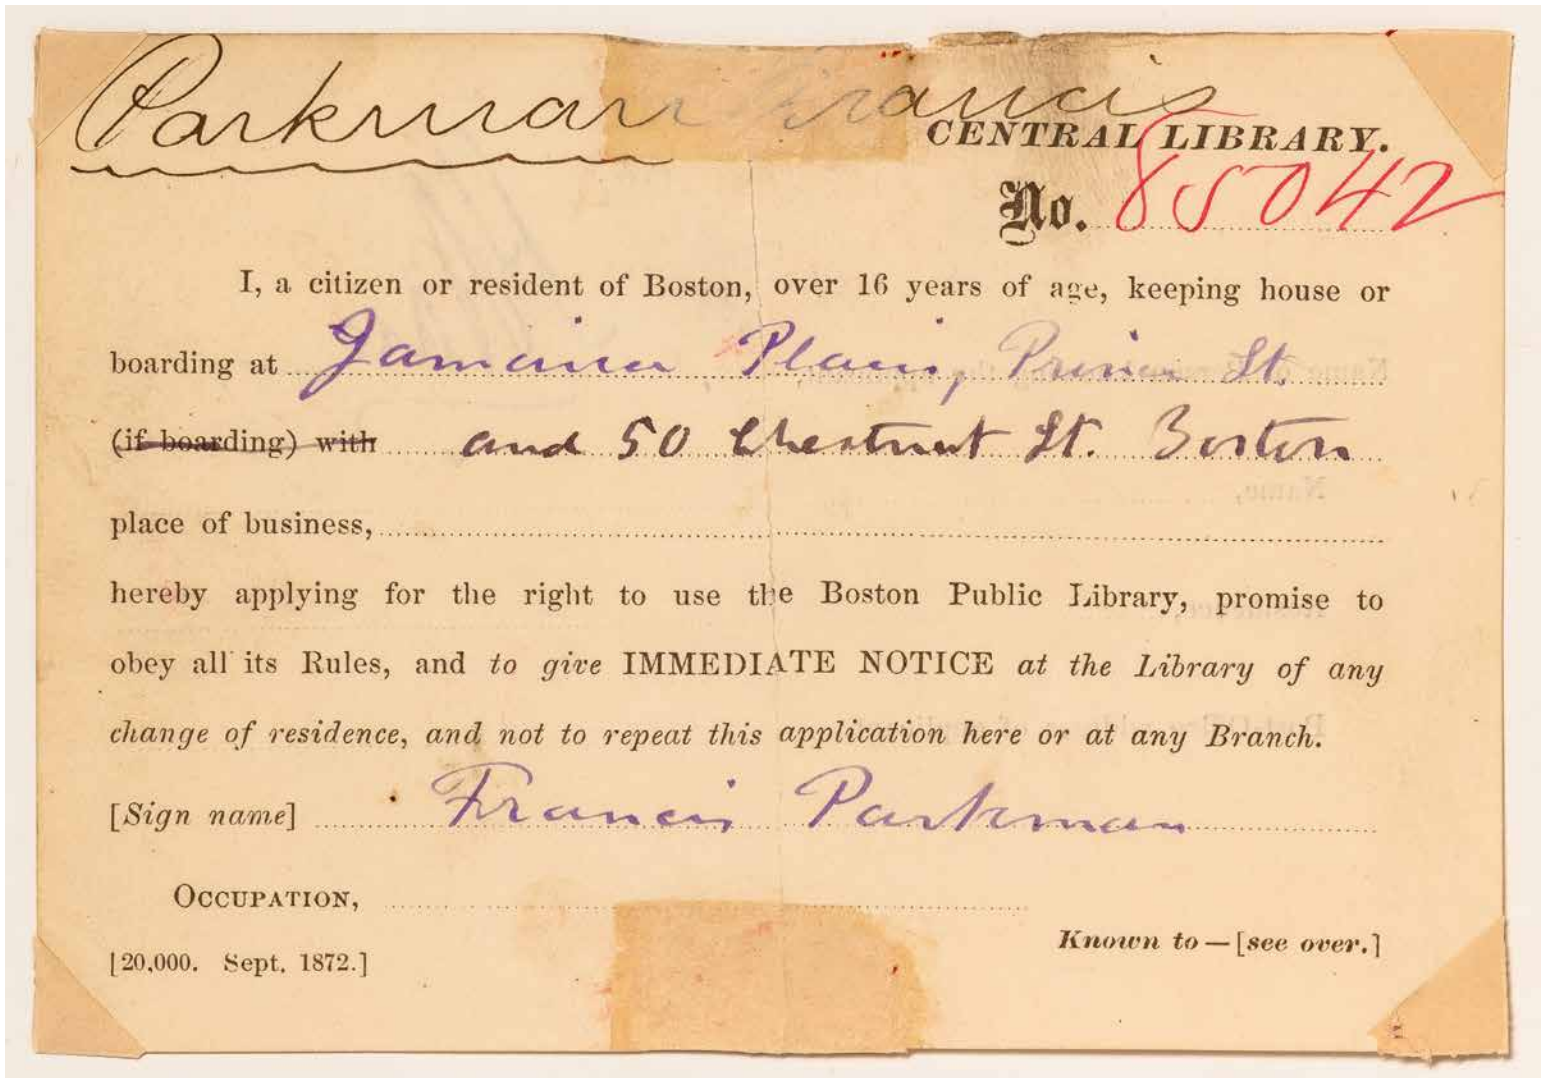 Parkman Francis
CENTRAL LIBRARY.
No. 85042
I, a citizen or resident of Boston, over 16 years of age, keeping house or
boarding at Jamaica Plain, Prince St.
(if boarding) with and 50 Chestnut St. Boston
place of business,
hereby applying for the right to use the Boston Public Library, promise to
obey all its Rules, and to give IMMEDIATE NOTICE at the Library of any
change of residence, and not to repeat this application here or at any Branch.
[Sign name] Francis Parkman
OCCUPATION,
Known to — [see over.]
[20,000. Sept. 1872.]